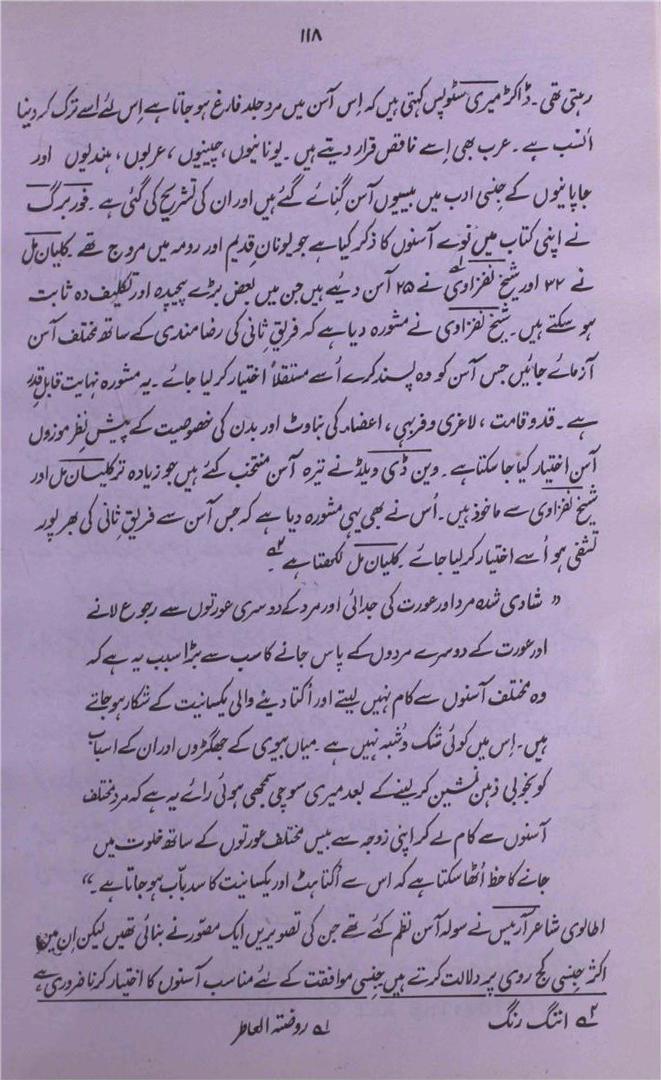 ۱۱۸
رہتی تھی۔ ڈاکٹر میری سٹوپس کہتی ہیں کہ اِس آسن میں مرد جلد فارغ ہو جاتا ہے اِس لئے اسے ترک کر دینا
اَنسب ہے۔ عرب بھی اِسے ناقص قرار دیتے ہیں۔ یونانیوں، چینیوں، عربوں، ہندیوں اور
جاپانیوں کے جنسی ادب میں بیسیوں آسن گِنائے گئے ہیں اور ان کی تشریح کی گئی ہے۔ فوربرگ
نے اپنی کتاب میں نوے آسنوں کا ذکر کیا ہے جو یونانِ قدیم اور رومہ میں مروج تھے۔ کلیان مل
نے ۳۲ اور شیخ نفزاوی لے نے ۲۵ آسن دیئے ہیں جن میں بعض بڑے پیچیدہ اور تکلیف دہ ثابت
ہو سکتے ہیں۔ شیخ نفزاوی نے مشورہ دیا ہے کہ فریقِ ثانی کی رضامندی کے ساتھ مختلف آسن
آزمائے جائیں جس آسن کو وہ پسند کرے اُسے مستقلاً اختیار کر لیا جائے۔ یہ مشورہ نہایت قابلِ قدر
ہے۔ قد و قامت، لاغری و فربہی، اعضاء کی بناوٹ اور بدن کی خصوصیت کے پیشِ نظر موزوں
آسن اختیار کیا جا سکتا ہے۔ وین ڈی ویلڈ نے تیرہ آسن منتخب کئے ہیں جو زیادہ تر کلیان مل اور
شیخ نفزاوی سے ماخوذ ہیں۔ اُس نے بھی یہی مشورہ دیا ہے کہ جس آسن سے فریقِ ثانی کی بھرپور
تشفی ہو اُسے اختیار کر لیا جائے۔ کلیان مل لکھتا ہے ۲ے۔
" شادی شدہ مرد اور عورت کی جدائی اور مرد کے دوسری عورتوں سے رجوع لانے
اور عورت کے دوسرے مردوں کے پاس جانے کا سب سے بڑا سبب یہ ہے کہ
وہ مختلف آسنوں سے کام نہیں لیتے اور اُکتا دینے والی یکسانیت کے شکار ہو جاتے
ہیں۔ اِس میں کوئی شک و شبہ نہیں ہے۔ میاں بیوی کے جھگڑوں اور ان کے اسباب
کو بخوبی ذہن نشین کر لینے کے بعد میری سوچی سمجھی ہوئی رائے یہ ہے کہ مرد مختلف
آسنوں سے کام لے کر اپنی زوجہ سے بیس مختلف عورتوں کے ساتھ خلوت میں
جانے کا حظ اُٹھا سکتا ہے کہ اس سے اُکتاہٹ اور یکسانیت کا سدِّباب ہو جاتا ہے۔"
اطالوی شاعر آریس نے سولہ آسن نظم کئے تھے جن کی تصویریں ایک مصوّر نے بنائی تھیں لیکن اِن میں
اکثر جنسی کج روی پر دلالت کرتے ہیں جنسی موافقت کے لئے مناسب آسنوں کا اختیار کرنا ضروری ہے
۱ے روضتہ العاطر
۲ے اننگ رنگ